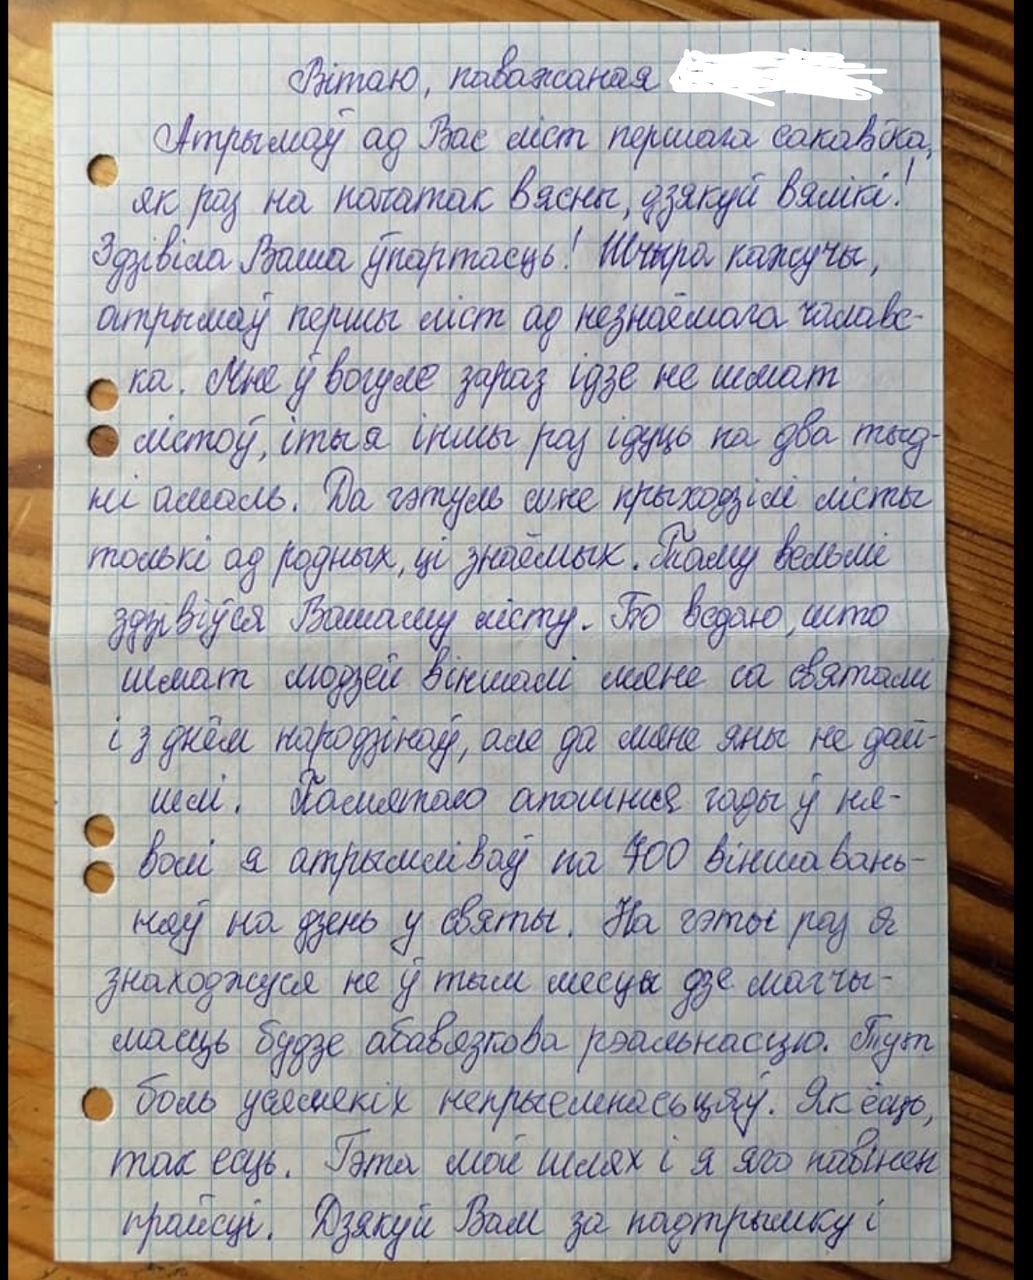 Вітаю, паважаная
Атрымаў ад Вас ліст першага сакавіка,
як раз на пачатак вясны, дзякуй вялікі!
Здзівіла Ваша ўпартасць! Шчыра кажучы,
атрымаў першы ліст ад незнаёмага чалаве-
ка. Мне ў вогуле зараз ідзе не шмат
лістоў, і тыя іншы раз ідуць па два тыд-
ні амаль. Да гэтуль мне прыходзілі лісты
толькі ад родных, ці знаёмых. Таму вельмі
здзівіўся Вашаму лісту. Бо ведаю, што
шмат людзей віншавалі мяне са святамі
і з днём народзінаў, але да мяне яны не дай-
шлі. Памятаю апошнія гады ў ня-
волі я атрымліваў па 700 віншавань-
няў на дзень у святы. На гэты раз я
знаходжуся не ў тым месцы дзе магчы-
масць будзе абавязкова рэальнасцю. Тут
боль усялякіх непрыемнасьцяў. Як ёсць,
так есць. Гэта мой шлях і я яго павінен
прайсці. Дзякуй Вам за падтрымку і